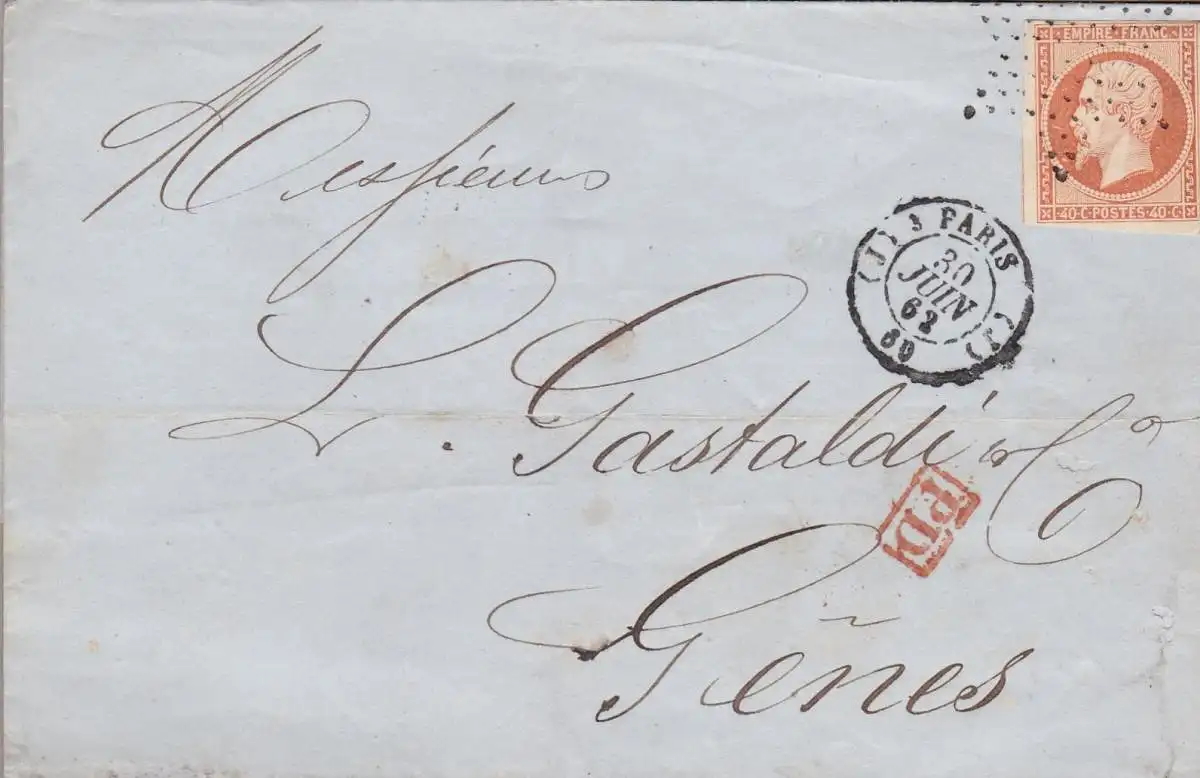 EMPIRE·FRANC
40·C·POSTES·40·C
Messieurs
(J) 3 PARIS (3)
30
JUIN
62
60
L. Gastaldi & Cº
P.D.
Gênes